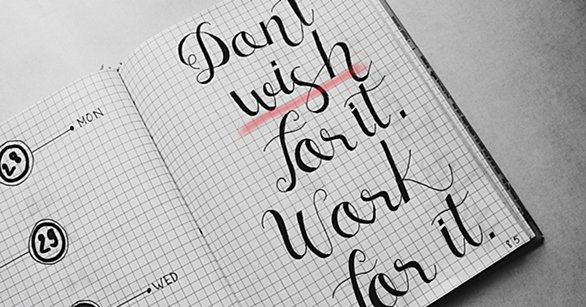 28
MON
29
WED
Dont
wish
for it.
Work
for it.
85